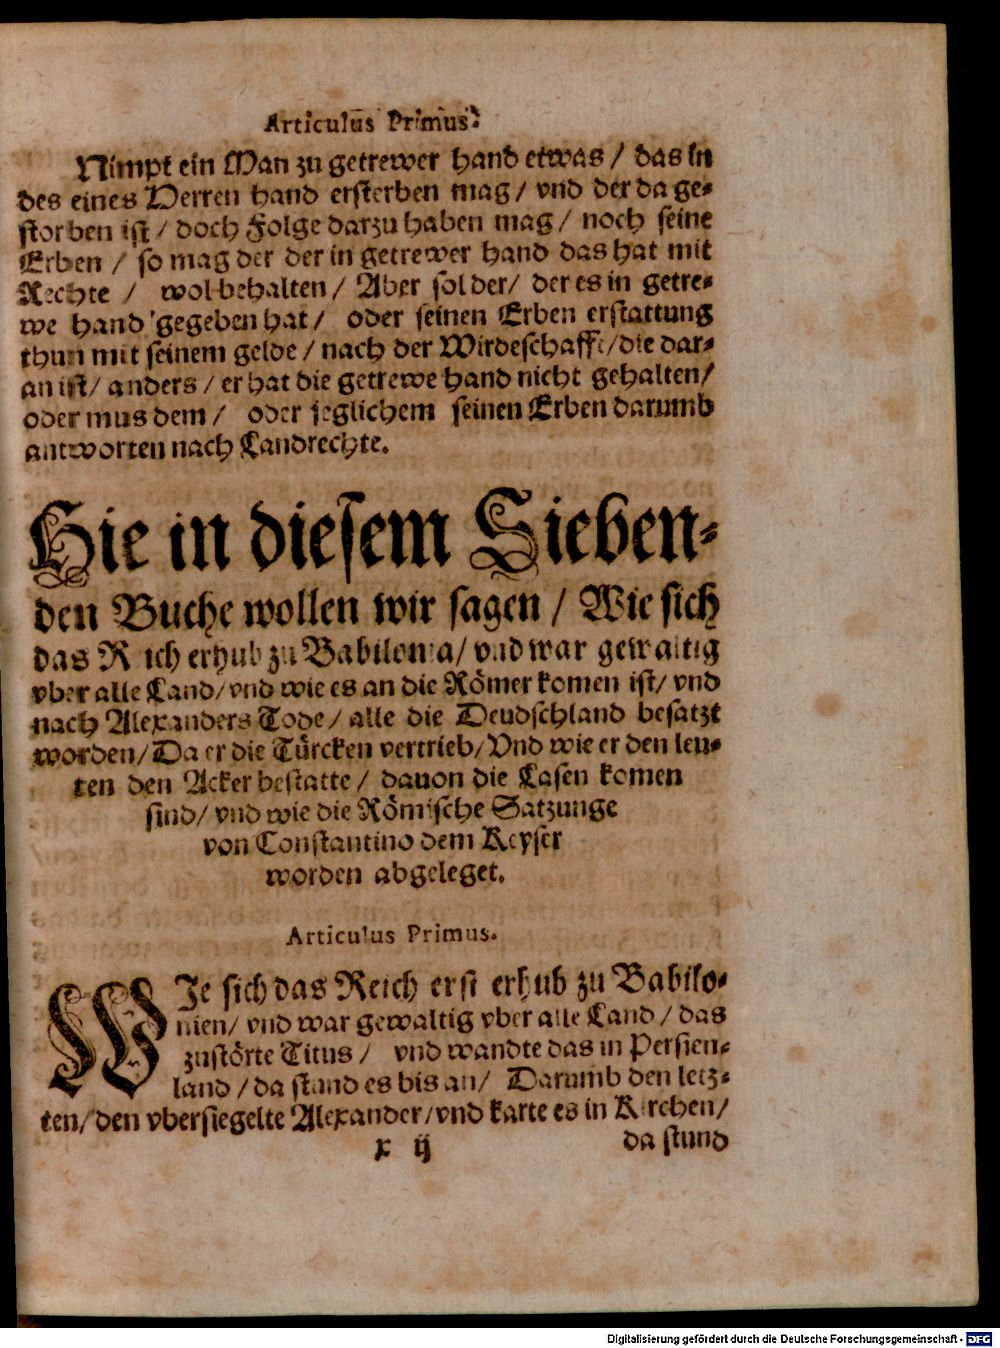 Articulus Primus.
Nimpt ein Man zu getrewer hand etwas / das in
des eines Herren hand ersterben mag / vnd der da ge-
storben ist / doch Folge darzu haben mag / noch seine
Erben / so mag der der in getrewer hand das hat mit
Rechte / wol behalten / Aber sol der / der es in getre-
we hand gegeben hat / oder seinen Erben erstattung
thun mit seinem gelde / nach der Wirdeschafft / die dar-
an ist / anders / er hat die getrewe hand nicht gehalten /
oder mus dem / oder jeglichem seinen Erben darumb
antworten nach Landrechte.
Hie in diesem Sieben-
den Buche wollen wir sagen / Wie sich
das Reich erhub zu Babilonia / vnd war gewaltig
vber alle Land / vnd wie es an die Römer komen ist / vnd
nach Alexanders Tode / alle die Deudschland besatzt
worden / Da er die Türcken vertrieb / Vnd wie er den leu-
ten den Acker bestatte / dauon die Lasen komen
sind / vnd wie die Römische Satzunge
von Constantino dem Keyser
worden abgeleget.
Articulus Primus.
WIe sich das Reich erst erhub zu Babilo-
nien / vnd war gewaltig vber alle Land / das
zustörte Titus / vnd wandte das in Persien-
land / da stand es bis an / Darumb den letz-
ten / den vbersiegelte Alexander / vnd karte es in Kirchen /
x ij da stund
Digitalisierung gefördert durch die Deutsche Forschungsgemeinschaft - DFG